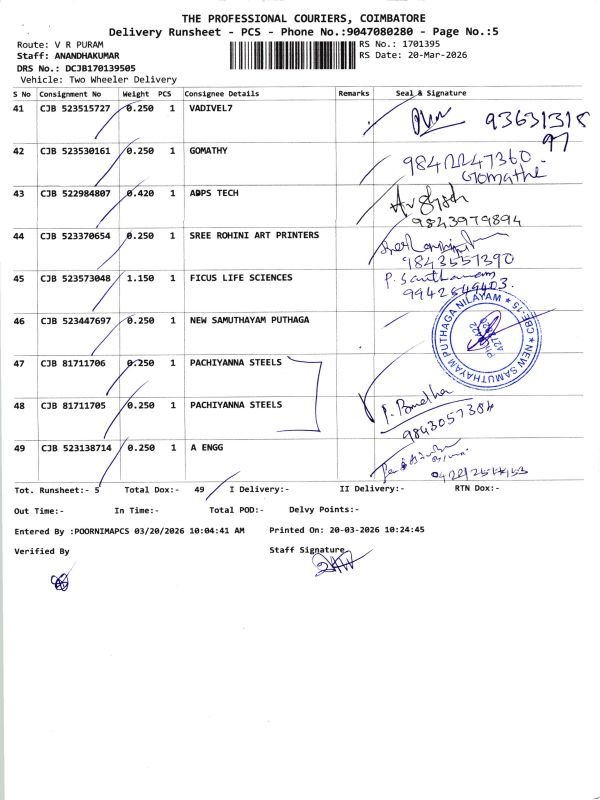 THE PROFESSIONAL COURIERS, COIMBATORE
Delivery Runsheet - PCS - Phone No.:9047080280 - Page No.:5
Route: V R PURAM
RS No.: 1701395
Staff: ANANDHAKUMAR
RS Date: 20-Mar-2026
DRS No.: DCJB170139505
Vehicle: Two Wheeler Delivery
S No Consignment No Weight PCS Consignee Details Remarks Seal & Signature
41 CJB 523515727 0.250 1 VADIVEL7 93631318
97
42 CJB 523530161 0.250 1 GOMATHY
Gomathi
43 CJB 522984807 0.420 1 ADPS TECH
9843979894
44 CJB 523370654 0.250 1 SREE ROHINI ART PRINTERS
9843551390
45 CJB 523573048 1.150 1 FICUS LIFE SCIENCES P. Santhanam
9942649403.
46 CJB 523447697 0.250 1 NEW SAMUTHAYAM PUTHAGA
NEW SAMUTHAYAM PUTHAGA NILAYAM ★ CBE-15 ★
47 CJB 81711706 0.250 1 PACHIYANNA STEELS
48 CJB 81711705 0.250 1 PACHIYANNA STEELS
9843057384
49 CJB 523138714 0.250 1 A ENGG
Tot. Runsheet:- 5 Total Dox:- 49 I Delivery:- II Delivery:- RTN Dox:-
Out Time:- In Time:- Total POD:- Delvy Points:-
Entered By :POORNIMAPCS 03/20/2026 10:04:41 AM Printed On: 20-03-2026 10:24:45
Verified By Staff Signature